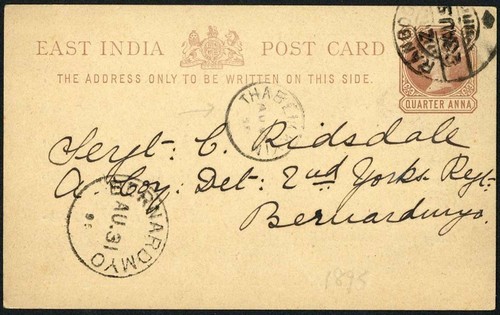 EAST INDIA POST CARD
THE ADDRESS ONLY TO BE WRITTEN ON THIS SIDE.
QUARTER ANNA
Sergt. C. Ridsdale
A. Coy. Det: 2nd Yorks Regt
Bernardmyo.
BERNARDMYO
AU.31
95
1895